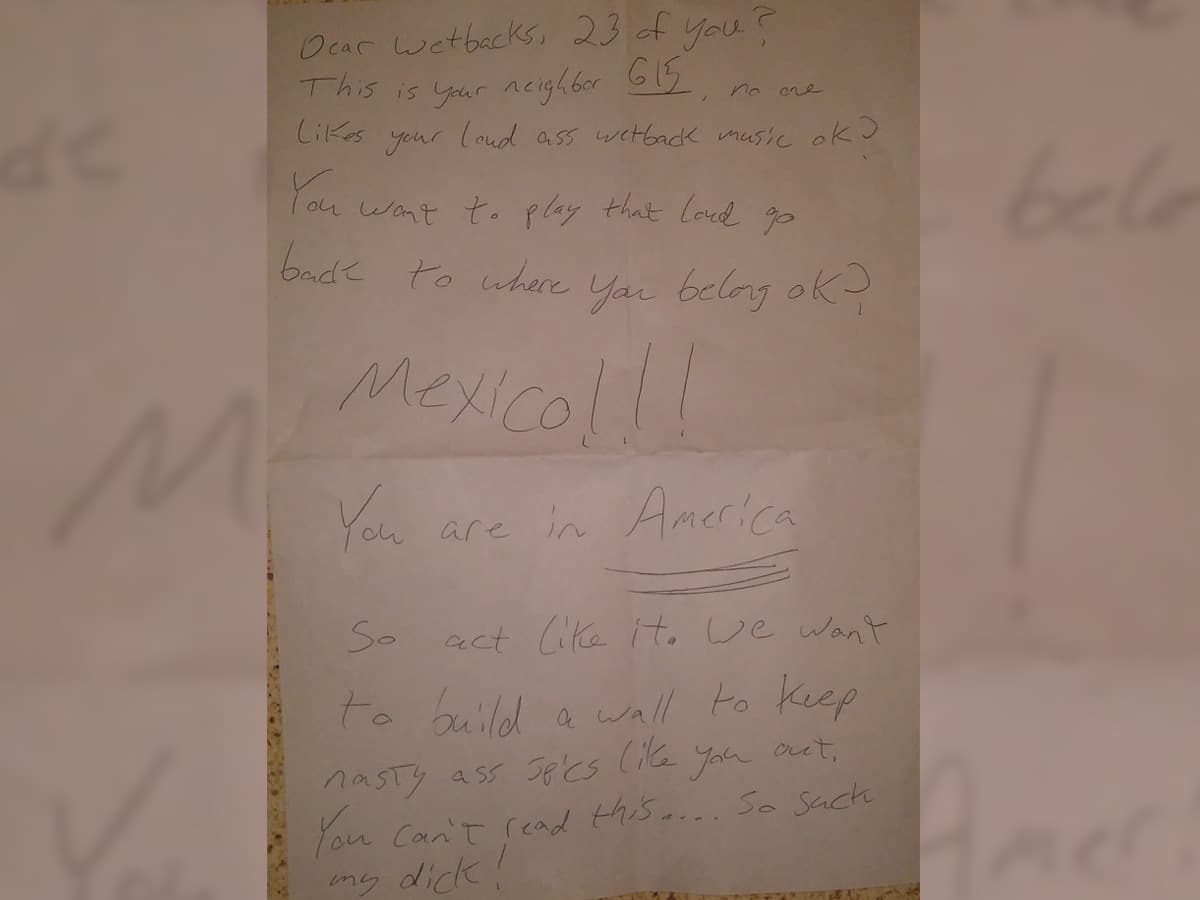 Dear wetbacks, 23 of you?
This is your neighbor 615, no one
likes your loud ass wetback music ok?
You want to play that loud go
back to where you belong ok?
Mexico!!!
You are in America
So act like it. We want
to build a wall to keep
nasty ass spics like you out.
You can't read this.... so suck
my dick!